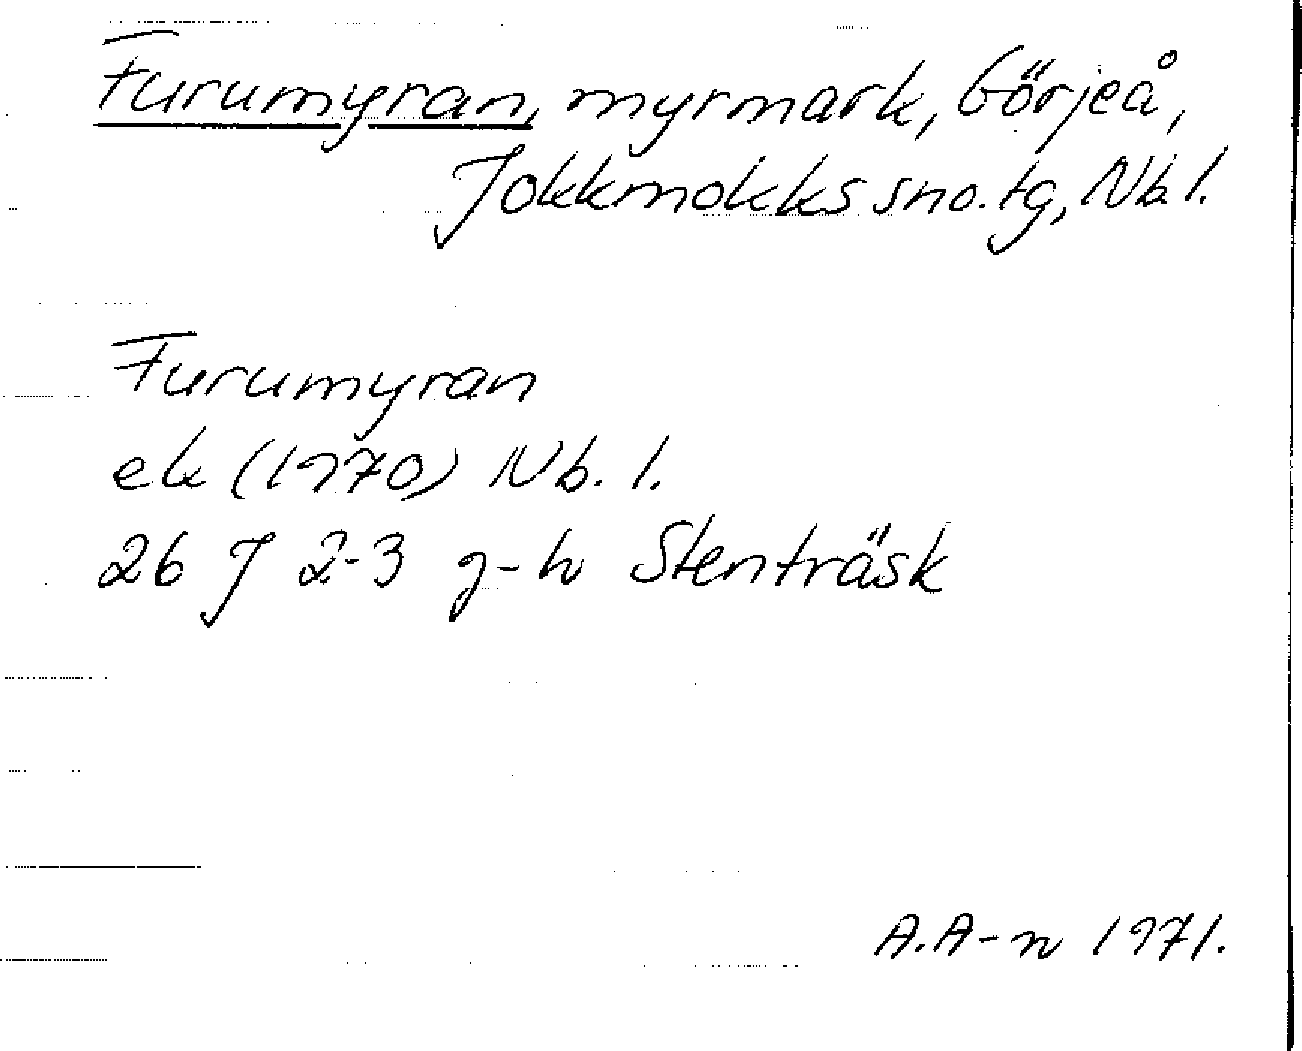 Furumyran, myrmark, Görjeå,
Jokkmokks sno.tg, Nb.l.
Furumyran
ek (1970) Nb. l.
26 J 2-3 g-h Stenträsk
A.A-n 1971.